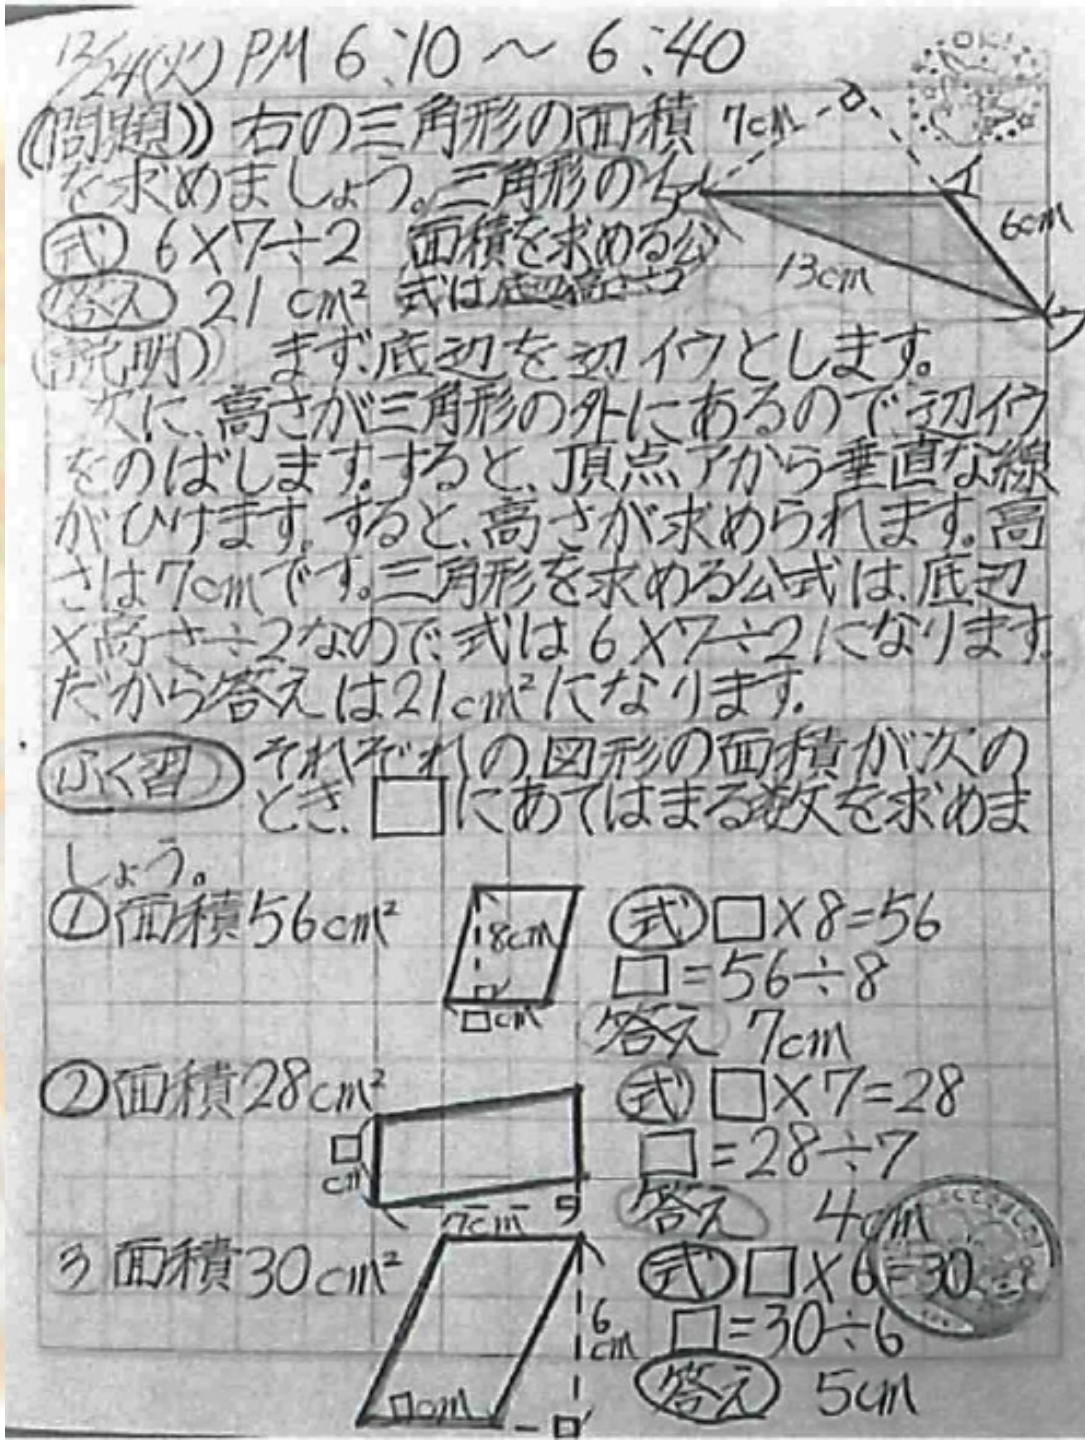 12/24(火) PM 6:10 〜 6:40
《問題》 右の三角形の面積
を求めましょう。三角形の
式 6×7÷2 面積を求める公
答え 21 cm² 式は底辺×高さ÷2
7cm
ア
イ
6cm
13cm
ウ
《説明》 まず、底辺を辺イウとします。
次に、高さが三角形の外にあるので、辺イウ
をのばします。すると、頂点アから垂直な線
がひけます。すると、高さが求められます。高
さは7cmです。三角形を求める公式は、底辺
×高さ÷2なので、式は6×7÷2になります。
だから答えは21cm²になります。
ふく習 それぞれの図形の面積が次の
とき、□にあてはまる数を求めま
しょう。
①面積56cm² 8cm □cm 式 □×8=56
□=56÷8
答え 7cm
②面積28cm² □cm 7cm 式 □×7=28
□=28÷7
答え 4cm
3 面積30cm² 6cm □cm 式 □×6=30
□=30÷6
答え 5cm